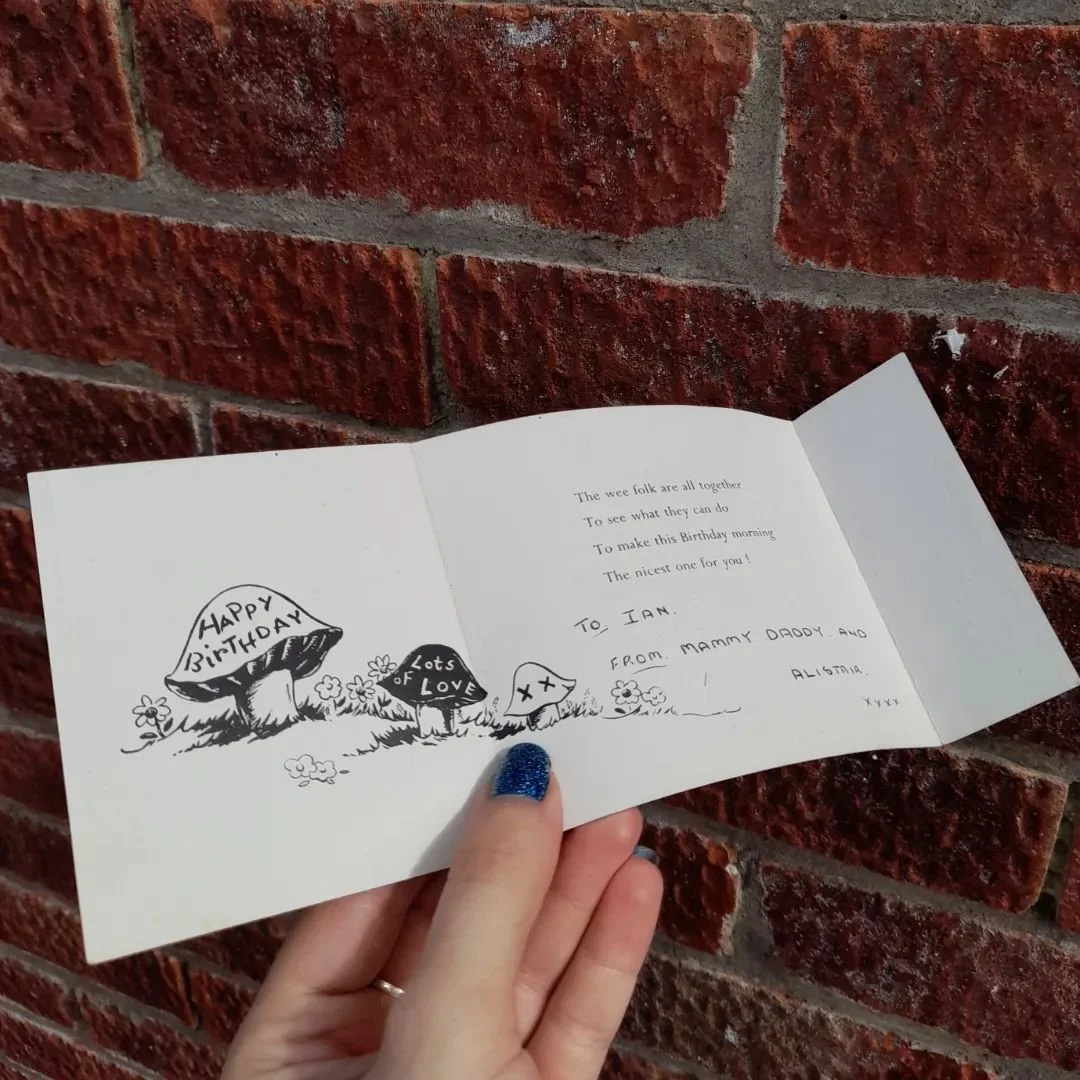 HAPPY
BirTHDAY
Lots
oF LOVE
X X
The wee folk are all together
To see what they can do
To make this Birthday morning
The nicest one for you !
To IAN.
FROM. MAMMY DADDY. AND
ALISTAIR.
xxxx